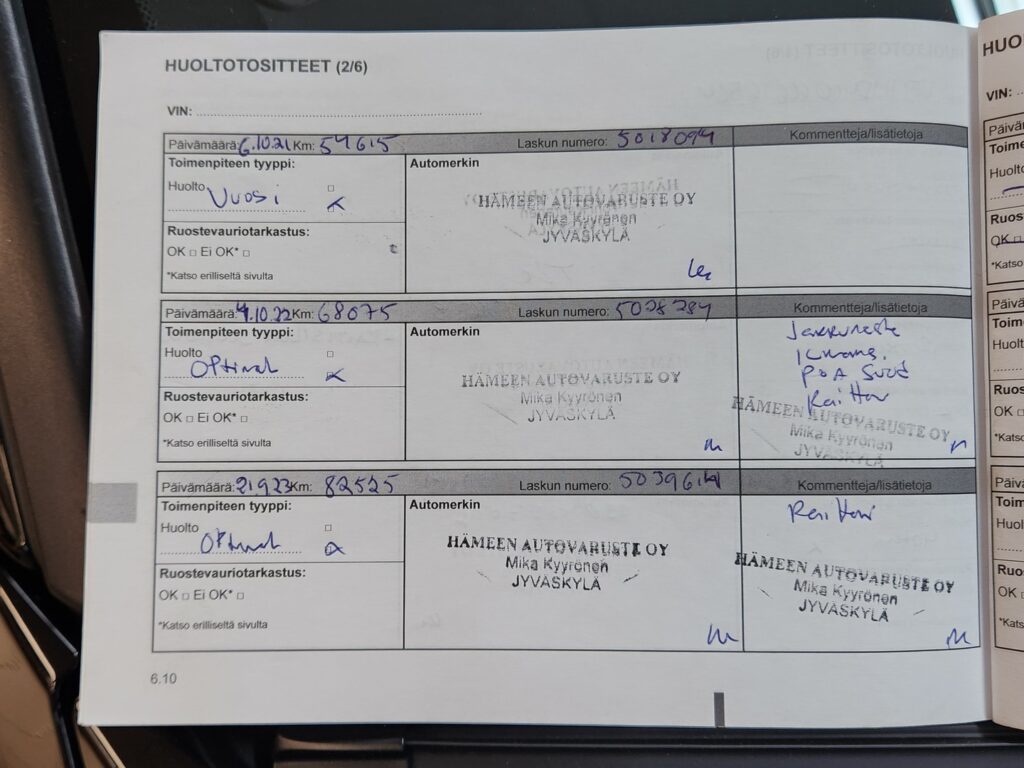 HUOLTOTOSITTEET (2/6)
VIN:
Päivämäärä: 6.10.21 Km: 54615 Laskun numero: 5018094 Kommentteja/lisätietoja
Toimenpiteen tyyppi: Automerkin
Huolto Vuosi
HÄMEEN AUTOVARUSTE OY
Mika Kyyrönen
JYVÄSKYLÄ
Ruostevauriotarkastus:
OK □ Ei OK* □
*Katso erilliseltä sivulta
Päivämäärä: 4.10.22 Km: 68075 Laskun numero: 5028284 Kommentteja/lisätietoja
Toimenpiteen tyyppi: Automerkin
Huolto Optimal
Jarruneste
POA Suod
HÄMEEN AUTOVARUSTE OY
Mika Kyyrönen
JYVÄSKYLÄ
HÄMEEN AUTOVARUSTE OY
Mika Kyyrönen
JYVÄSKYLÄ
Ruostevauriotarkastus:
OK □ Ei OK* □
*Katso erilliseltä sivulta
Päivämäärä: 21.9.23 Km: 82525 Laskun numero: Kommentteja/lisätietoja
Toimenpiteen tyyppi: Automerkin
Huolto Optimal
HÄMEEN AUTOVARUSTE OY
Mika Kyyrönen
JYVÄSKYLÄ
HÄMEEN AUTOVARUSTE OY
Mika Kyyrönen
JYVÄSKYLÄ
Ruostevauriotarkastus:
OK □ Ei OK* □
*Katso erilliseltä sivulta
6.10
HUO
VIN:
Päivä
Toime
Huolto
Ruos
OK
*Katso
Päivä
Toim
Huolt
Ruo
OK
*Katso
Päivä
Toim
Huol
Ruo
OK
*Kats